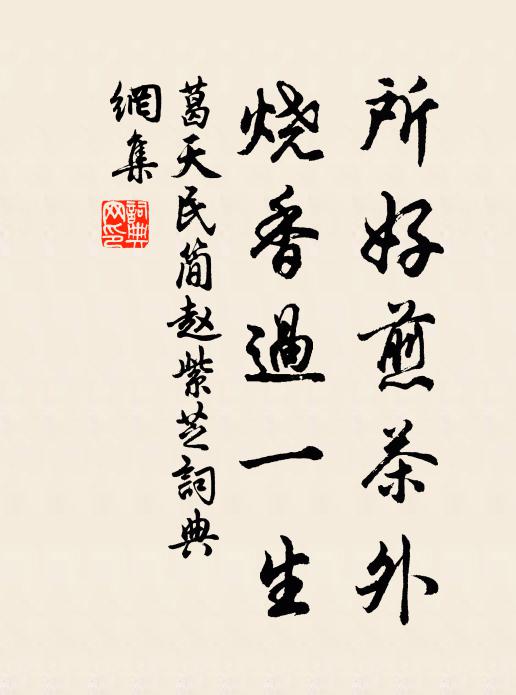 所好煎茶外
烧香過一生
葛天民简赵紫芝詞典
網集
詞典
网印